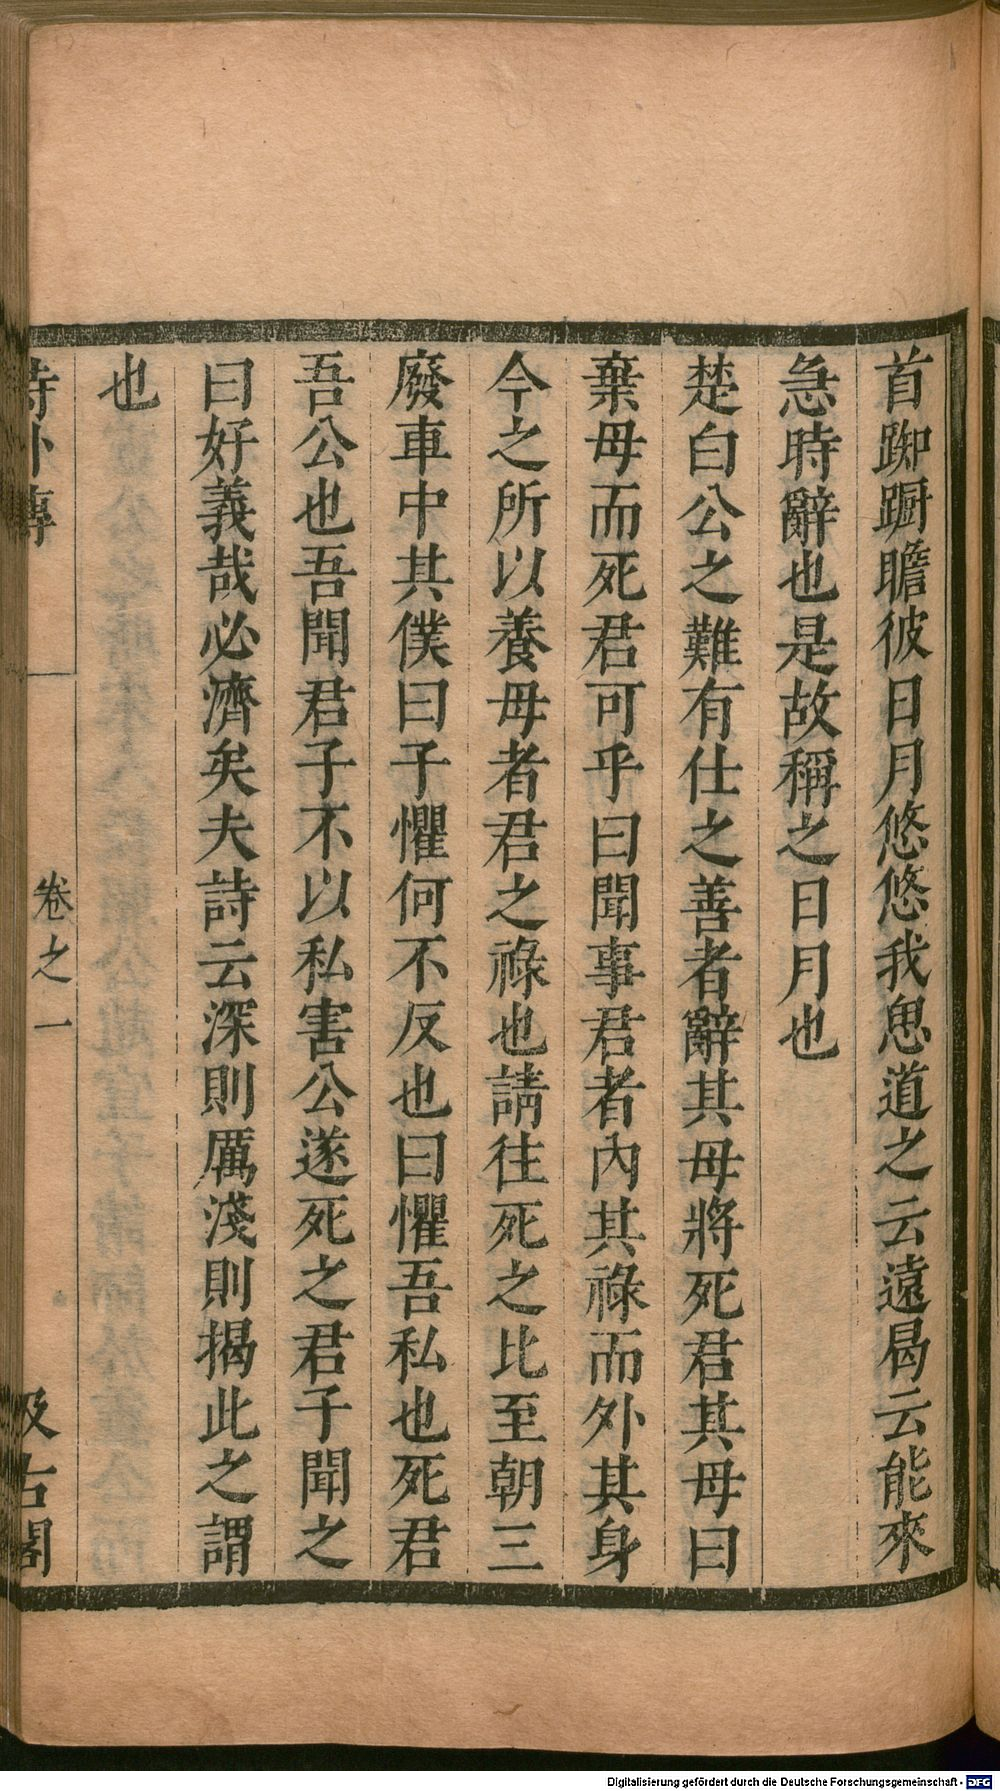 首踟蹰瞻彼日月悠悠我思道之云遠曷云能來
急時辭也是故稱之日月也
楚白公之難有仕之善者辭其母將死君其母曰
棄母而死君可乎曰聞事君者內其祿而外其身
今之所以養母者君之祿也請往死之比至朝三
廢車中其僕曰子懼何不反也曰懼吾私也死君
吾公也吾聞君子不以私害公遂死之君子聞之
曰好義哉必濟矣夫詩云深則厲淺則揭此之謂
也
詩外傳
卷之一
汲古閣
Digitalisierung gefördert durch die Deutsche Forschungsgemeinschaft - DFG